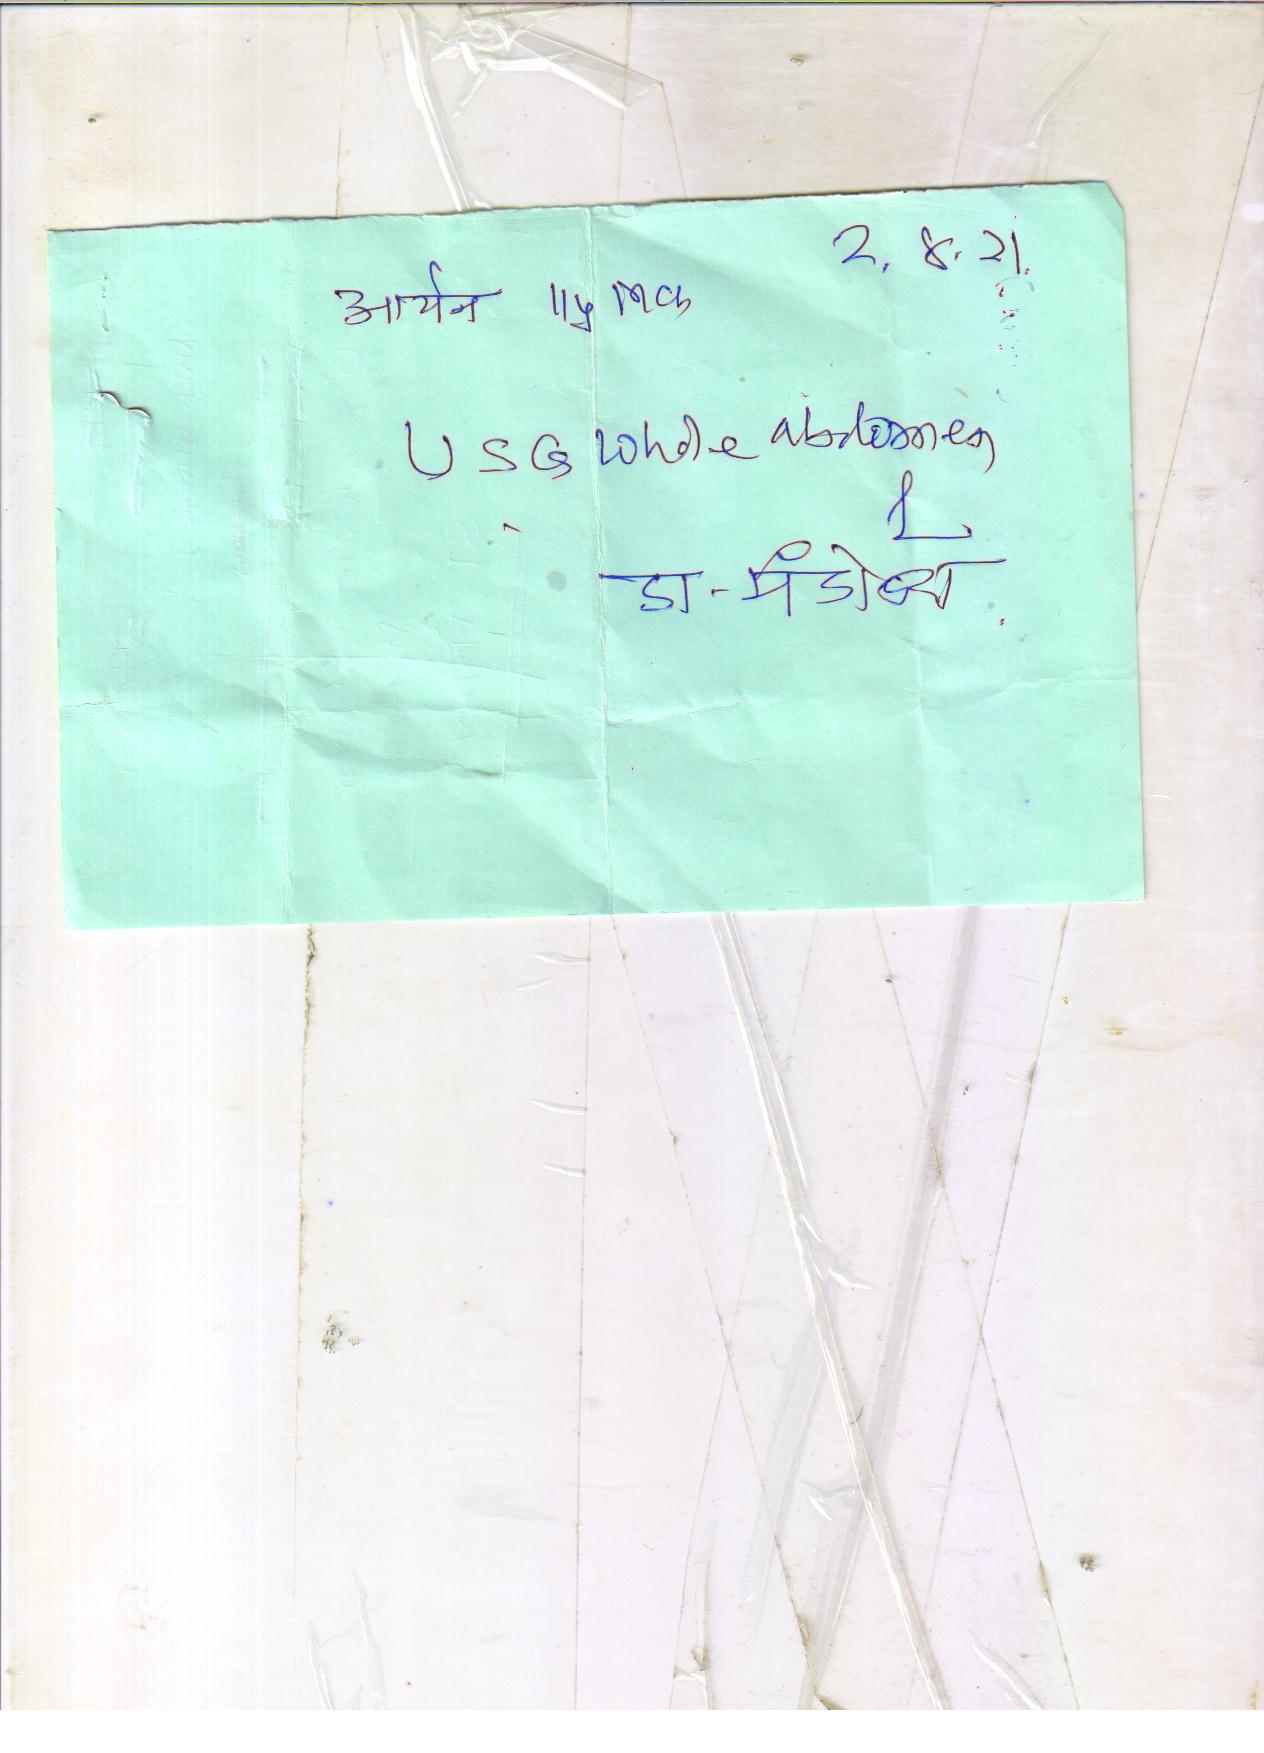 2. 8. 21.
आर्यन 11y Mch
USG whole abdomen
डा-मंडोव्रा